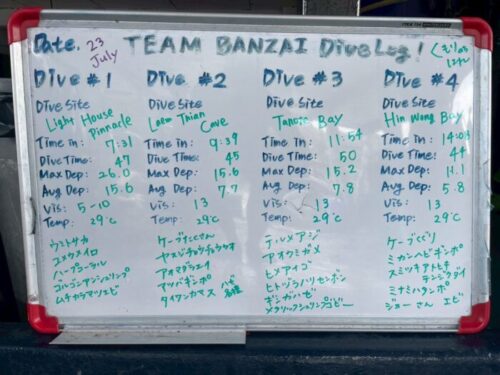 Date. 23 July TEAM BANZAI Dive Log! くもりのち はれ
Dive #1
Dive Site
Light House Pinnacle
Time in: 7:31
Dive Time: 47
Max Dep: 26.0
Avg Dep: 15.6
Vis: 5-10
Temp: 29℃
ウミトサカ
ユメウメイロ
ハープコーラル
ゴルゴニアンシュリンプ
ムチカラマツエビ
Dive #2
Dive Site
Laem Thian Cave
Time in: 9:39
Dive Time: 45
Max Dep: 15.6
Avg Dep: 7.7
Vis: 13
Temp: 29℃
ケーブたくさん
ヤエジチョウチョウウオ
アオマダラエイ
マツバギンポ
タイワンカマス ハゼ各種
Dive #3
Dive Site
Tanote Bay
Time in: 11:54
Dive Time: 50
Max Dep: 15.2
Avg Dep: 7.8
Vis: 13
Temp: 29℃
テルメアジ
アオウミガメ
ヒメアイゴ
ヒトヅラハリセンボン
ギンガハゼ
メタリックシュリンプゴビー
Dive #4
Dive Site
Hin Wong Bay
Time in: 14:03
Dive Time: 44
Max Dep: 11.1
Avg Dep: 5.8
Vis: 13
Temp: 29℃
ケーブくぐり
ミカンヘビギンポ
スミツキアトヒキ
テンジクダイ
ミナミハタンポ
ジョーさん エビ